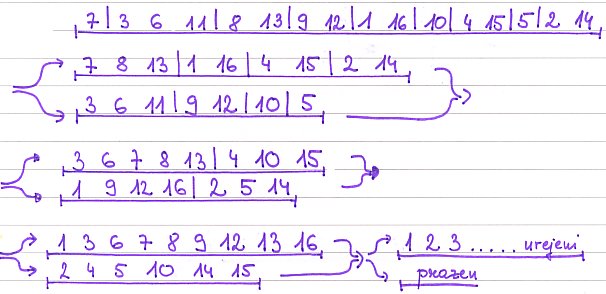 7 | 3 6 11 | 8 13 | 9 12 | 1 16 | 10 | 4 15 | 5 | 2 14
7 8 13 | 1 16 | 4 15 | 2 14
3 6 11 | 9 12 | 10 | 5
3 6 7 8 13 | 4 10 15
1 9 12 16 | 2 5 14
1 3 6 7 8 9 12 13 16
2 4 5 10 14 15
1 2 3 ..... urejeni
prazen